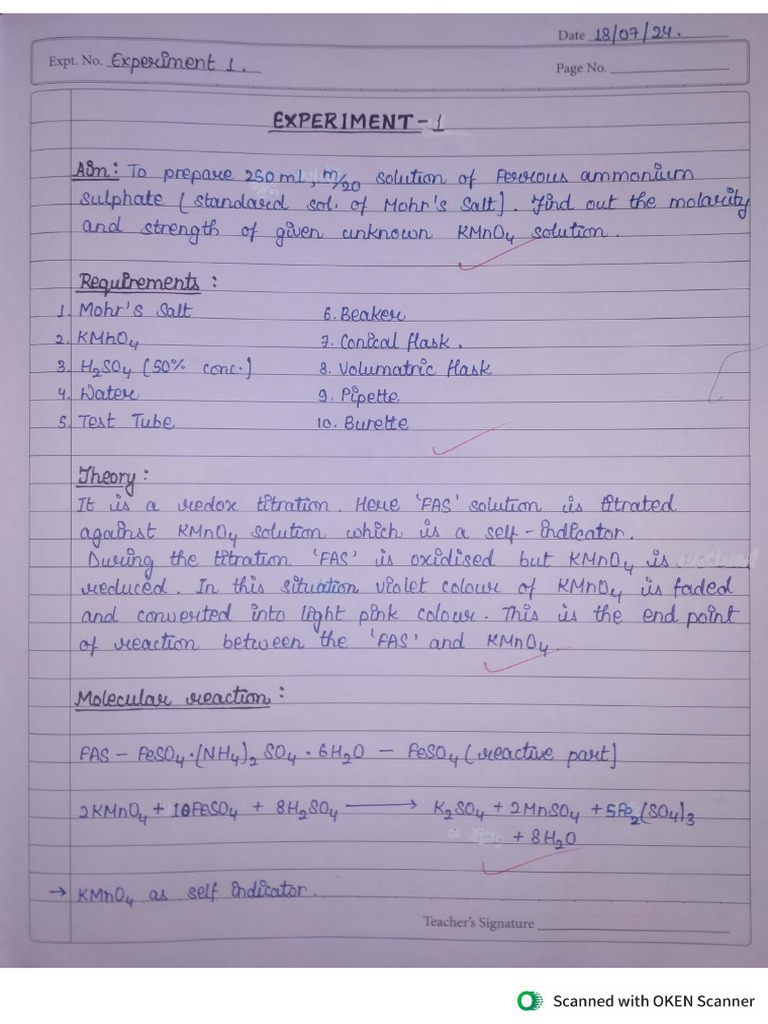 Date 18/07/24.
Expt. No. Experiment 1.
Page No.
EXPERIMENT-1
Aim: To prepare 250 ml, M/20 solution of Ferrous ammonium
sulphate (standard sol. of Mohr's Salt). Find out the molarity
and strength of given unknown KMnO4 solution.
Requirements:
1. Mohr's Salt
2. KMnO4
3. H2SO4 (50% conc.)
4. Water
5. Test Tube
6. Beaker
7. Conical flask.
8. Volumatric flask
9. Pipette
10. Burette
Theory:
It is a redox titration. Here 'FAS' solution is titrated
against KMnO4 solution which is a self-indicator.
During the titration 'FAS' is oxidised but KMnO4 is
reduced. In this situation violet colour of KMnO4 is faded
and converted into light pink colour. This is the end point
of reaction between the 'FAS' and KMnO4.
Molecular reaction:
FAS – FeSO4·(NH4)2 SO4·6H2O – FeSO4 (reactive part)
2KMnO4 + 10FeSO4 + 8H2SO4 ⟶ K2SO4 + 2MnSO4 + 5Fe2(SO4)3
+ 8H2O
→ KMnO4 as self indicator.
Teacher's Signature
Scanned with OKEN Scanner